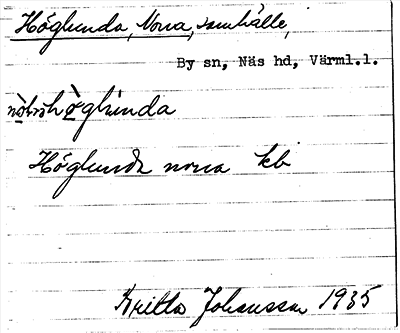 Höglunda, Norra, samhälle,
By sn, Näs hd, Värml.l.
höglunda
Höglunda norra kb
Britta Johansson 1935